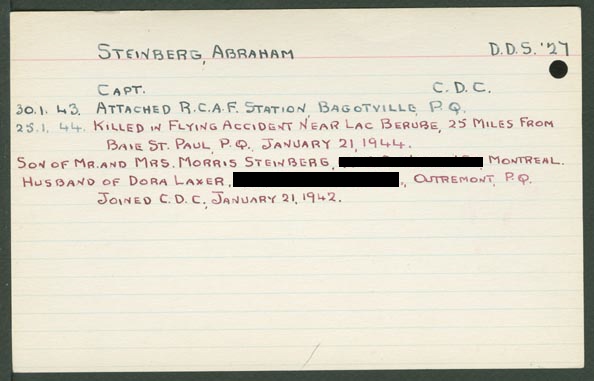 STEINBERG, ABRAHAM D.D.S. '27
CAPT. C.D.C.
30.1.43. ATTACHED R.C.A.F. STATION, BAGOTVILLE, P.Q.
25.1.44. KILLED IN FLYING ACCIDENT NEAR LAC BERUBE, 25 MILES FROM
BAIE ST. PAUL, P.Q., JANUARY 21, 1944.
SON OF MR. AND MRS. MORRIS STEINBERG, , MONTREAL.
HUSBAND OF DORA LAXER, ., OUTREMONT, P.Q.
JOINED C.D.C., JANUARY 21, 1942.